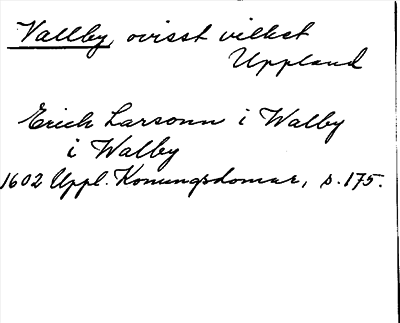 Vallby, ovisst vilket
Uppland
Erich Larsonn i Walby
i Walby
1602 Uppl. Konungsdomar, s. 175.